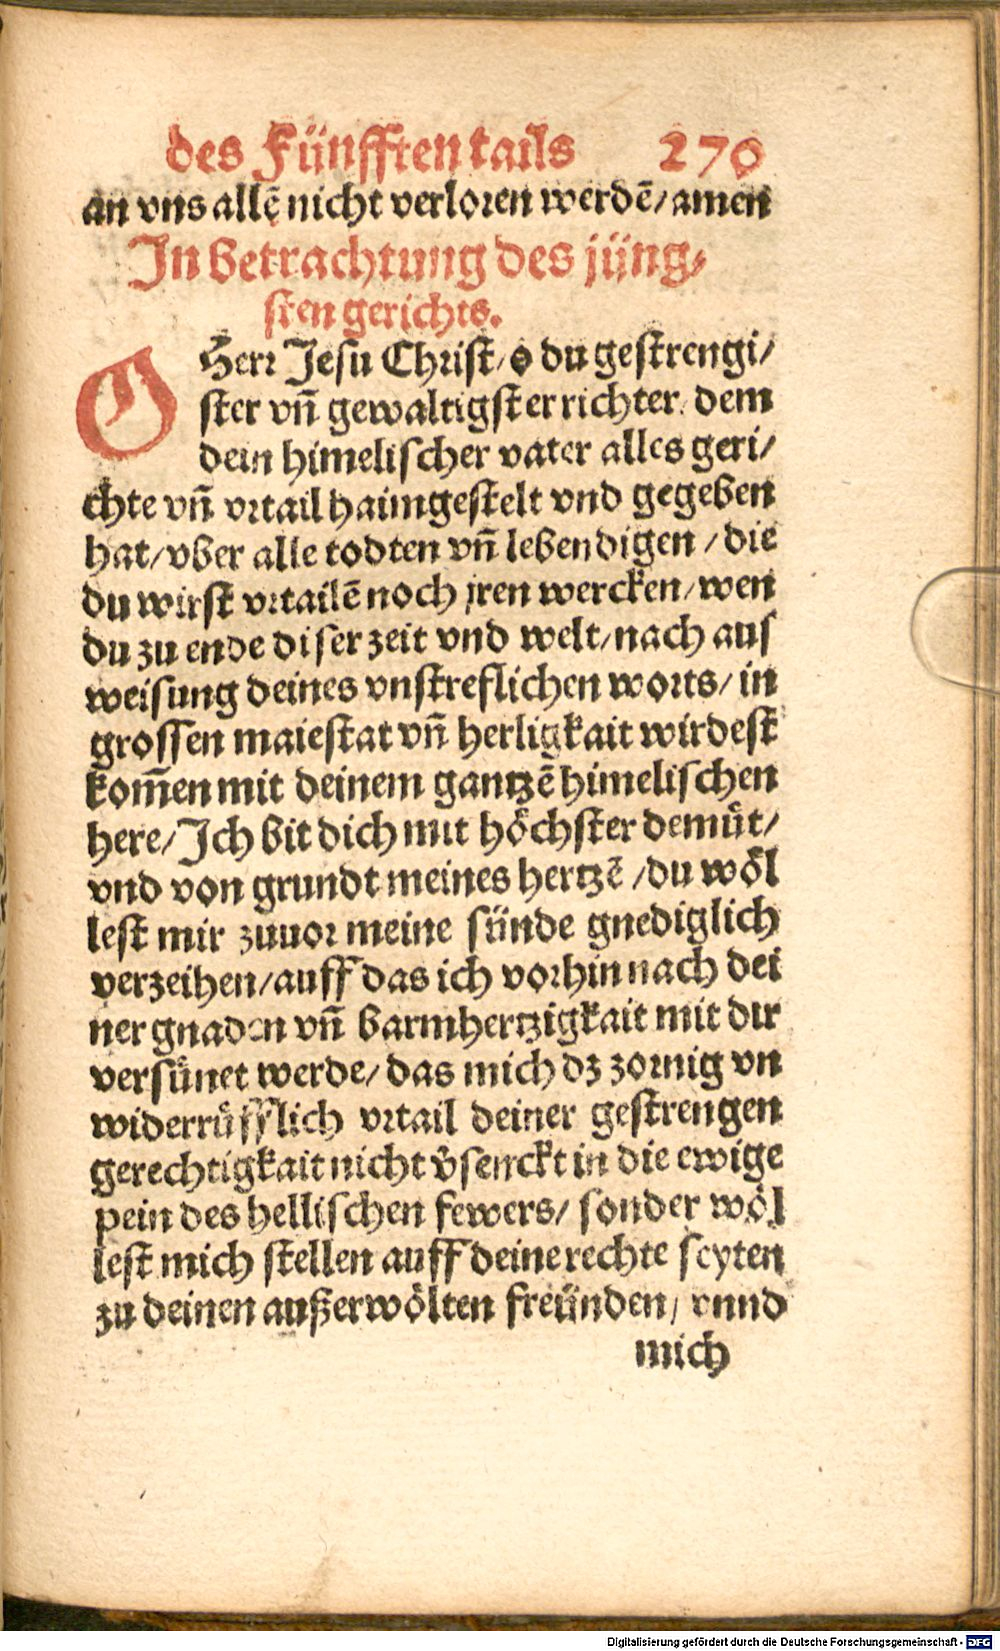 des Fünfften tails 270
an vns allē nicht verloren werdē/ amen
In betrachtung des jüng⸗
sten gerichts.
O Herr Jesu Christ/ o du gestrengi/
ster vñ gewaltigster richter, dem
dein himelischer vater alles geri/
chte vñ vrtail haimgestelt vnd gegeben
hat/ vber alle todten vñ lebendigen / die
du wirst vrtailē noch jren wercken/ wen
du zu ende diser zeit vnd welt/ nach aus
weisung deines vnstreflichen worts/ in
grossen maiestat vñ herligkait wirdest
kom̄en mit deinem gantzē himelischen
here/ Ich bit dich mit höchster demüt/
vnd von grundt meines hertzē /du wöl
lest mir zuuor meine sünde gnediglich
verzeihen/ auff das ich vorhin nach dei
ner gnaden vñ barmhertzigkait mit dir
versünet werde/ das mich dz zornig vn
widerrüfflich vrtail deiner gestrengen
gerechtigkait nicht v̊senckt in die ewige
pein des hellischen fewers/ sonder wöl
lest mich stellen auff deine rechte seyten
zu deinen außerwölten freünden/ vnnd
mich
Digitalisierung gefördert durch die Deutsche Forschungsgemeinschaft - DFG